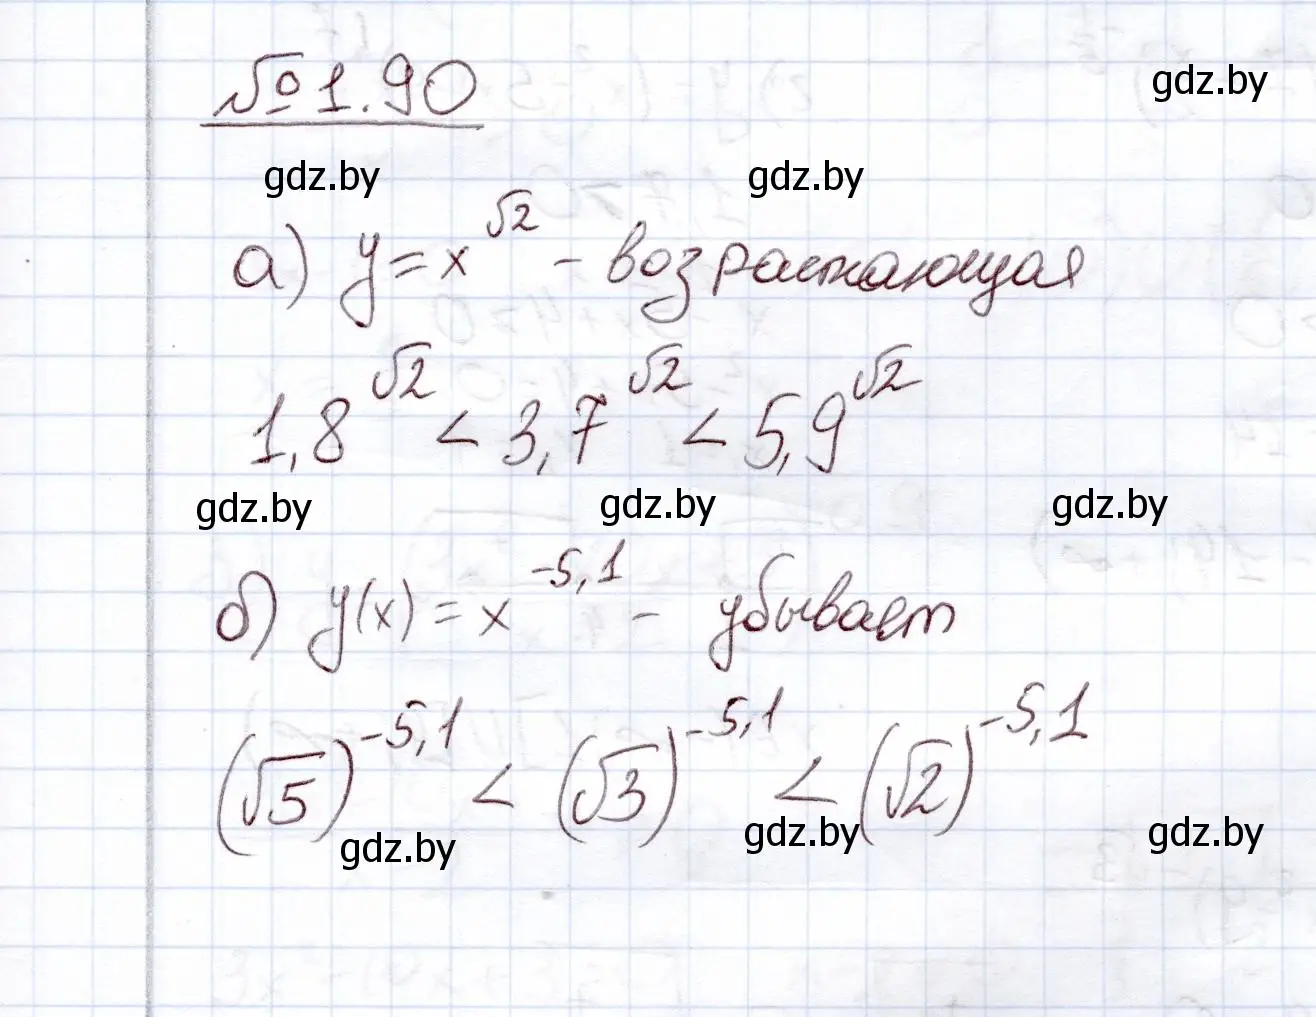 №1.90
gdz.by
gdz.by gdz.by
а) y = x^√2 - возрастающая
1,8^√2 < 3,7^√2 < 5,9^√2
gdz.by gdz.by gdz.by
б) y(x) = x^-5,1 - убывает
(√5)^-5,1 < (√3)^-5,1 < (√2)^-5,1
gdz.by gdz.by gdz.by